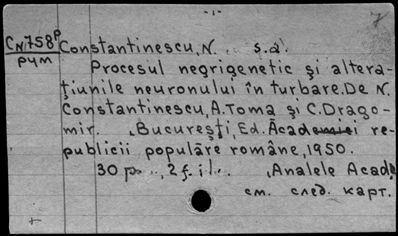 -1-
7
CN758P Constantinescu, N. .. s.a.
рум
Procesul negrigenetic şi altera-
ţiunile neuronului în turbare. De N.
Constantinescu, A. Toma şi C. Drago-
mir. . Bucureşti, Ed. Academiei re-
publicii populare române, 1950.
30 p. .., 2 f. il.. . (Analele Acade
см. след. карт.